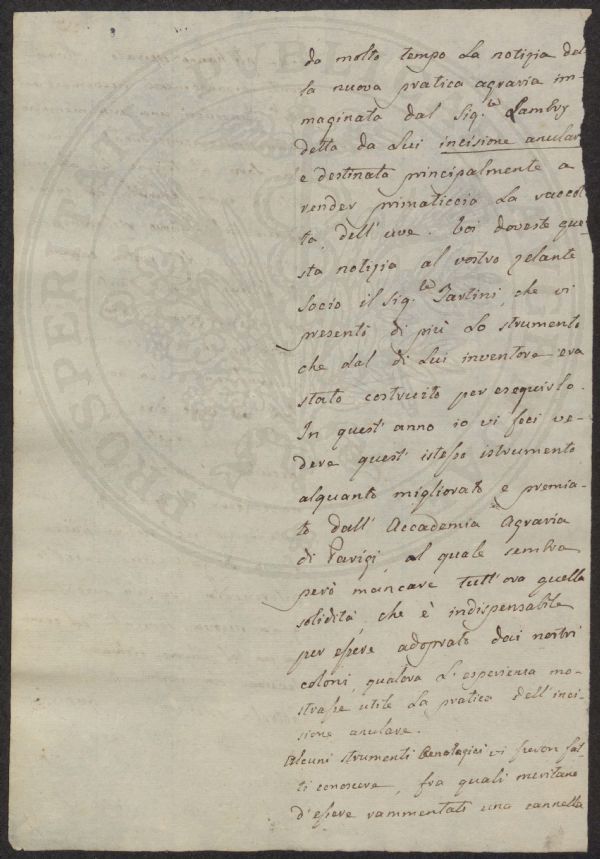 da molto tempo la notizia del-
la nuova pratica agraria im-
maginata dal Sig.re Lambry
detta da lui incisione anulare
e destinata principalmente a
render primaticcia la raccol-
ta dell' uve. Voi doveste que-
sta notizia al vostro zelante
socio il Sig.re Tartini, che vi
presentò di più lo strumento
che dal di lui inventore era
stato costruito per eseguirlo.
In quest' anno io vi feci ve-
dere quest' istesso istrumento
alquanto migliorato e premia-
to dall' Accademia Agraria
di Parigi, al quale sembra
però mancare tutt' ora quella
solidità, che è indispensabile
per essere adoprato dai nostri
coloni, qualora l' esperienza mo-
strasse utile la pratica dell' inci-
sione anulare.
Alcuni strumenti Oenologici vi furon fat-
ti conoscere, fra quali meritano
d' essere rammentati una cannella
PROSPERITATI PUBLICAE